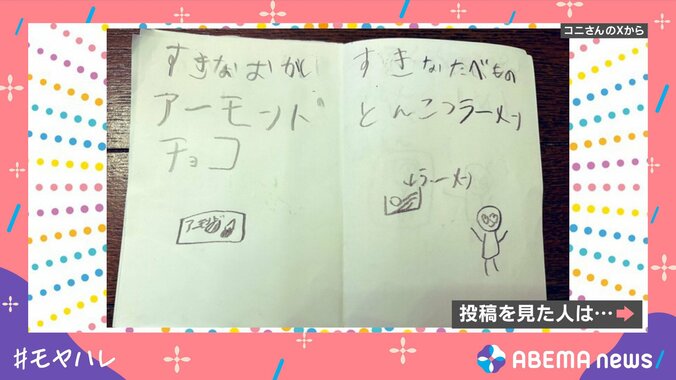 コニさんのXから
すきなおかし
アーモンド
チョコ
アーモンド
すきなたべもの
とんこつラーメン
↓ラーメン
投稿を見た人は…➡
#モヤハレ
ABEMA news/